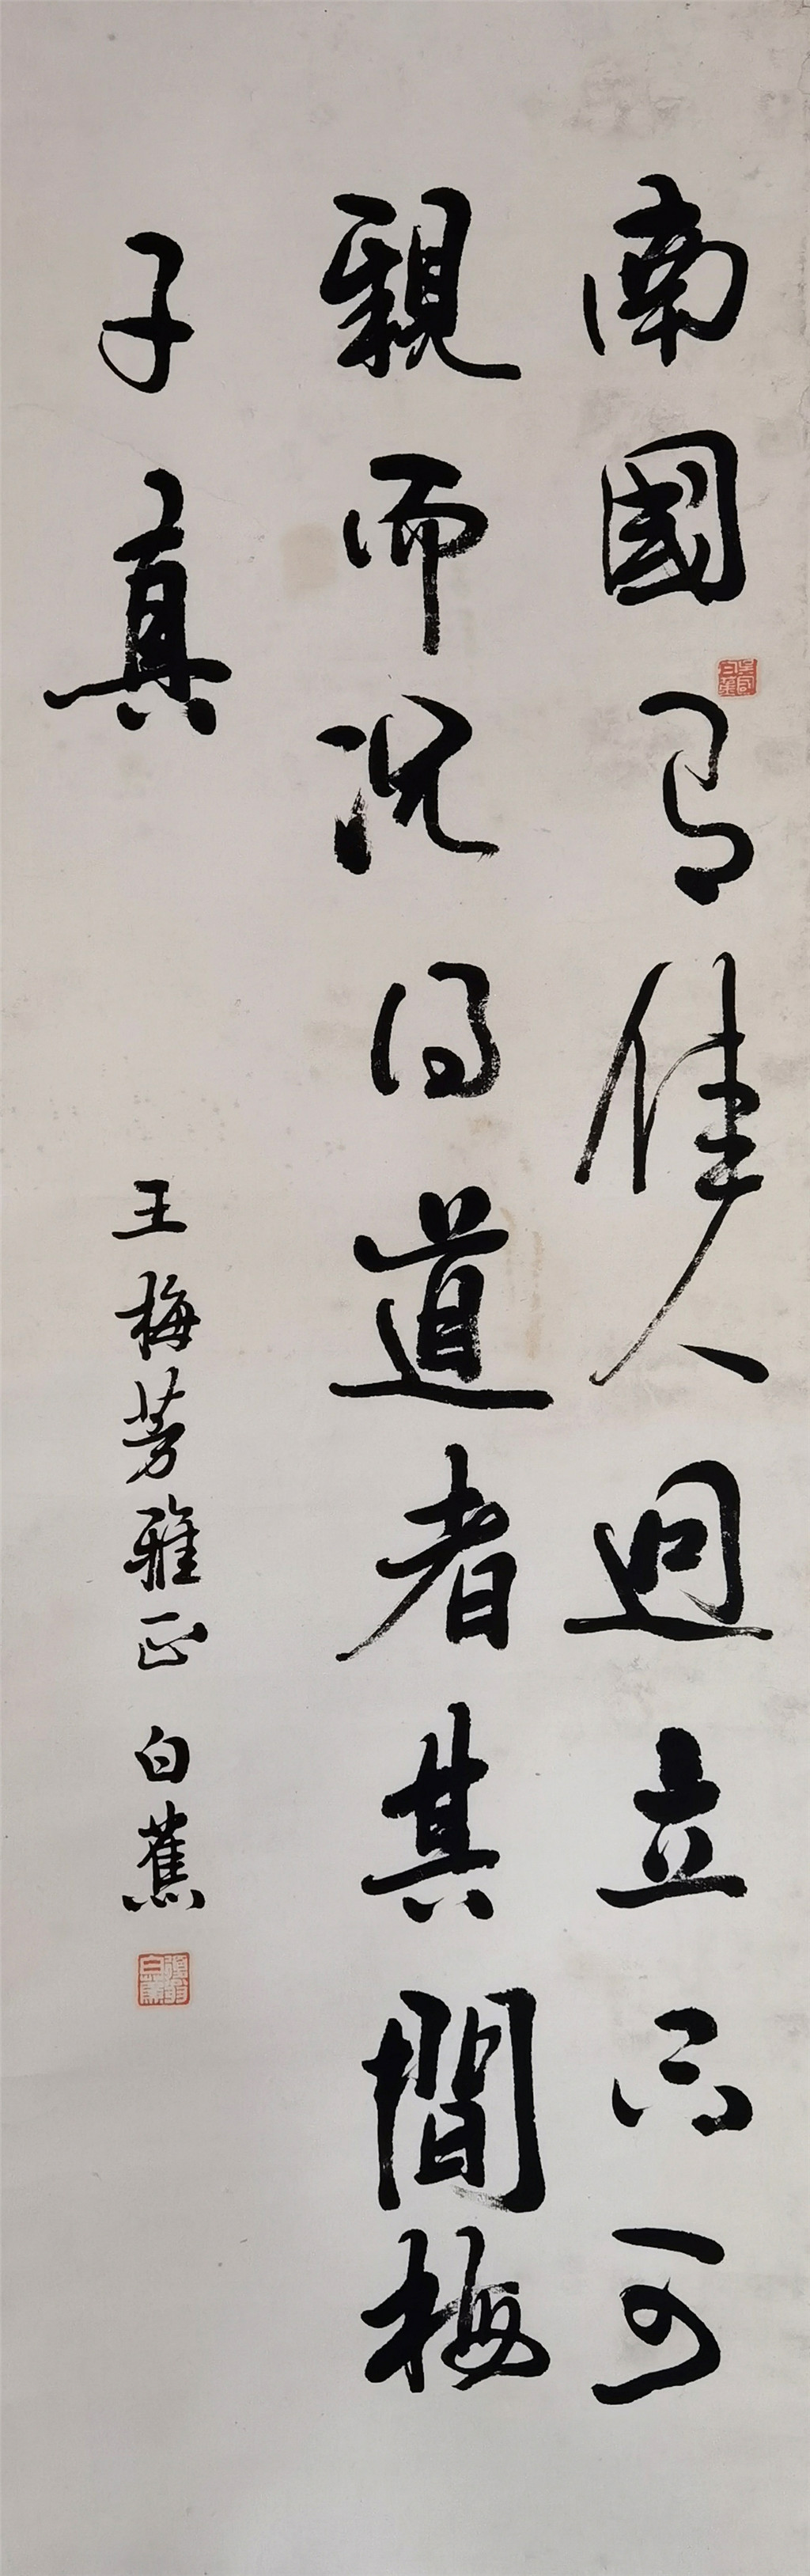 南國有佳人迥立不可
親而況得道者其間梅
子真
王梅芳雅正 白蕉